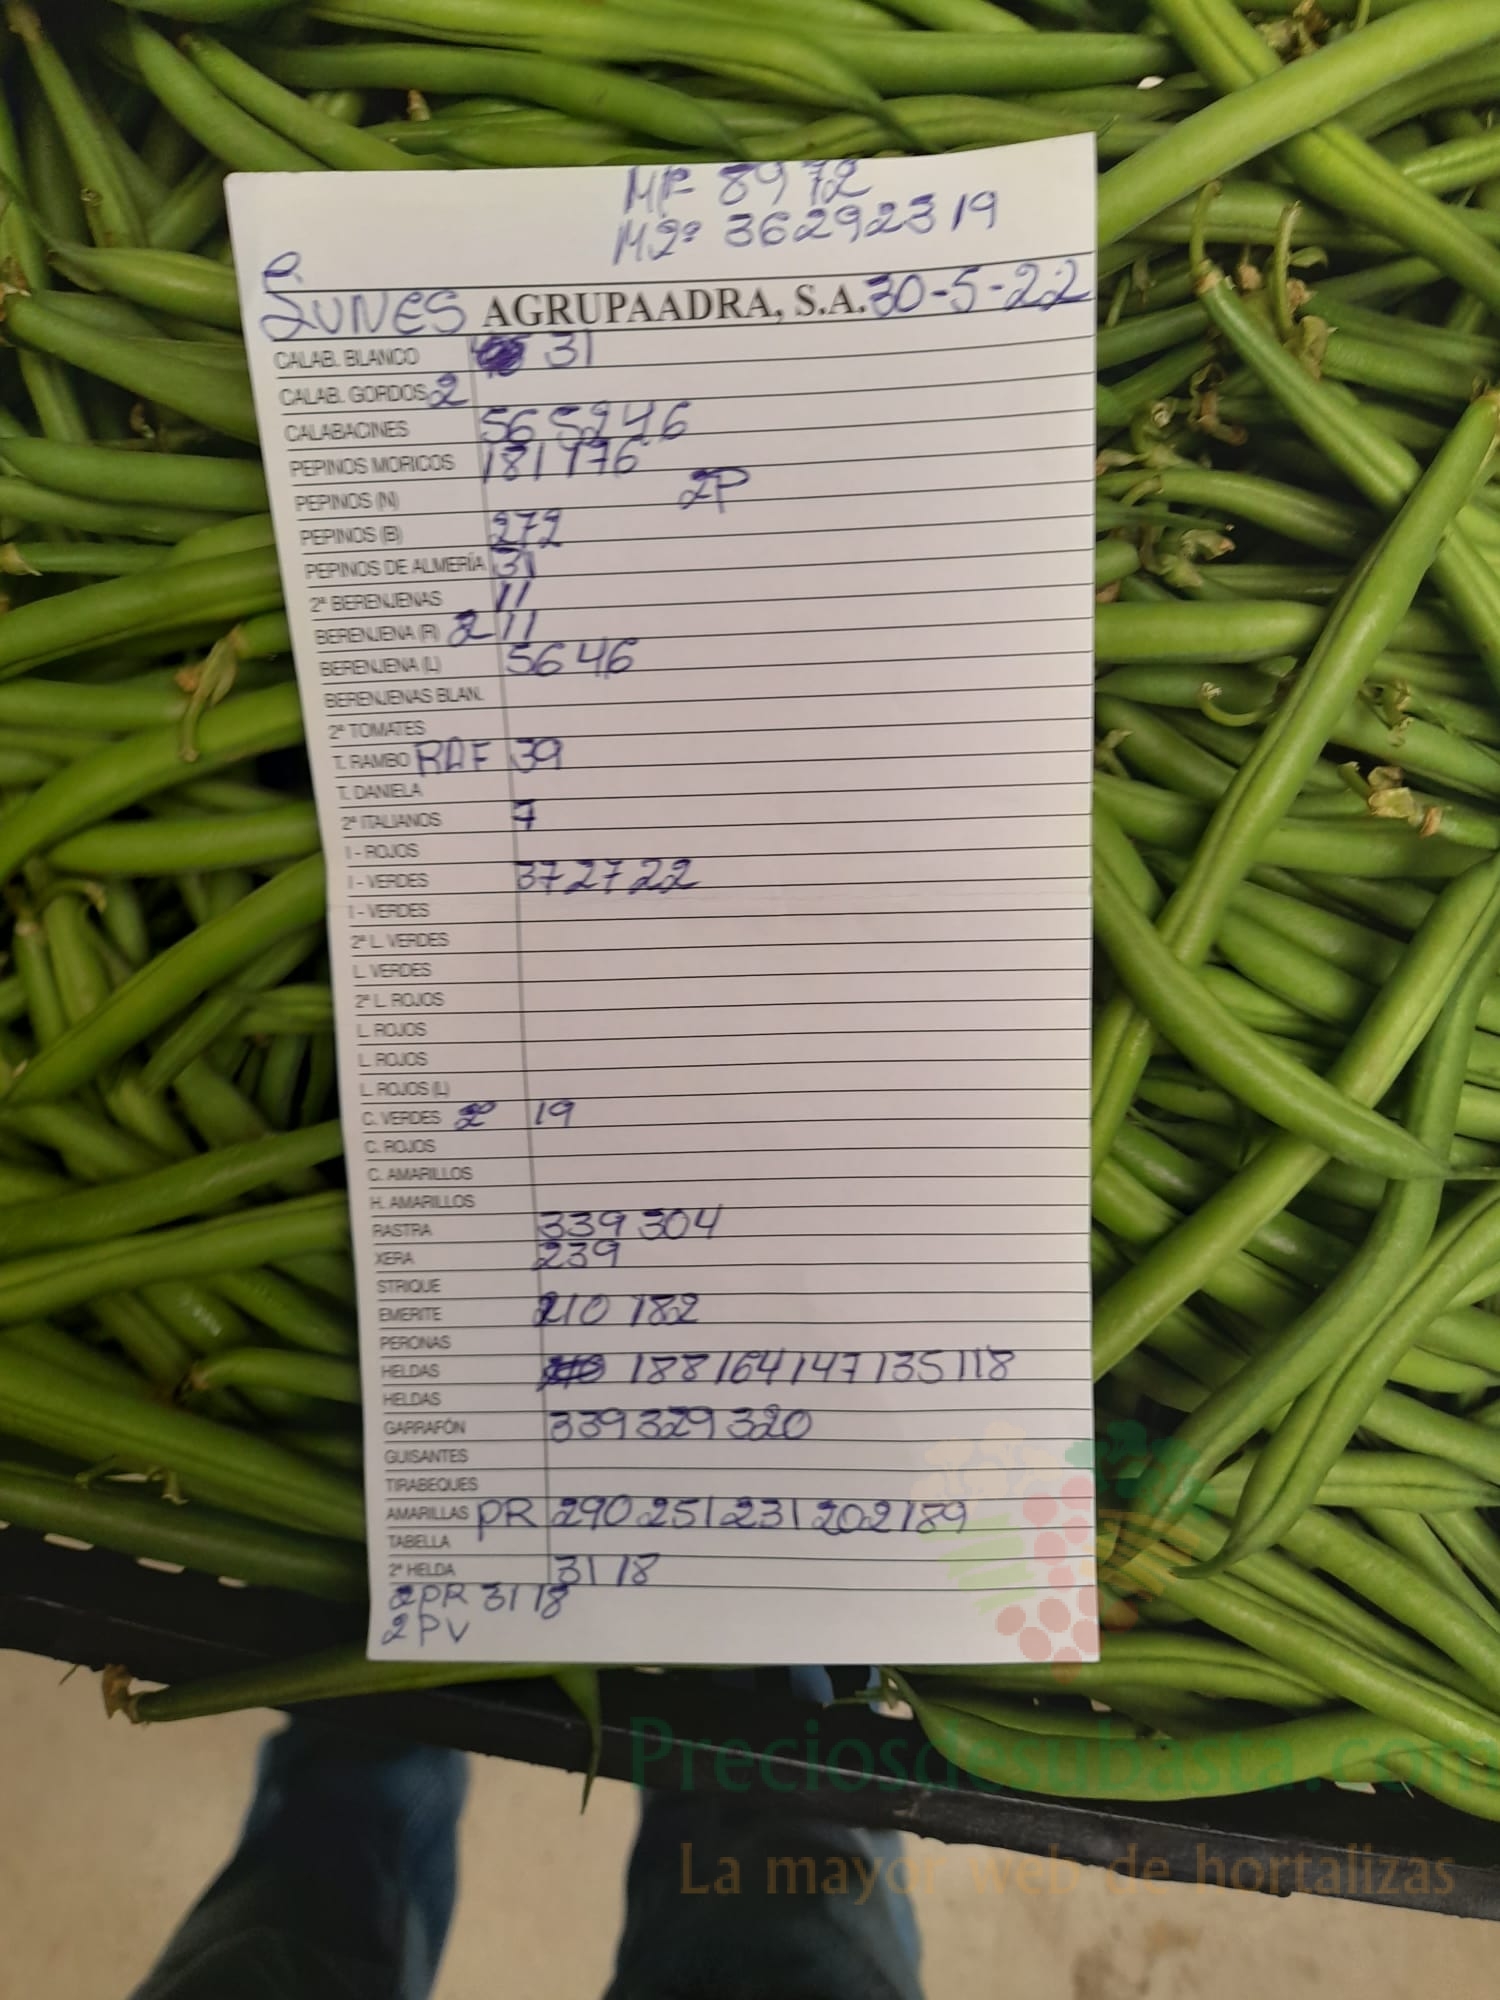 MP 89 72
M2ª 3629 23 19
P.
LUNES AGRUPAADRA, S.A. 30-5-22
CALAB. BLANCO 31
CALAB. GORDOS 2
CALABACINES 56 52 46
PEPINOS MORICOS 181 176
PEPINOS (N) 2P
PEPINOS (B) 272
PEPINOS DE ALMERÍA 31
2ª BERENJENAS 11
BERENJENA (R) 2 11
BERENJENA (L) 56 46
BERENJENAS BLAN.
2ª TOMATES
T. RAMBO RAF 39
T. DANIELA
2ª ITALIANOS 7
I - ROJOS
I - VERDES 37 27 22
I - VERDES
2ª L. VERDES
L. VERDES
2ª L. ROJOS
L. ROJOS
L. ROJOS
L. ROJOS (L)
C. VERDES 2ª 19
C. ROJOS
C. AMARILLOS
H. AMARILLOS
RASTRA 339 304
XERA 239
STRIQUE
EMERITE 210 182
PERONAS
HELDAS 188 164 147 135 118
HELDAS
GARRAFÓN 339 329 320
GUISANTES
TIRABEQUES
AMARILLAS PR 290 251 231 202 189
TABELLA
2ª HELDA 31 18
2PR 31 18
2PV
Preciosdesubasta.com
La mayor web de hortalizas